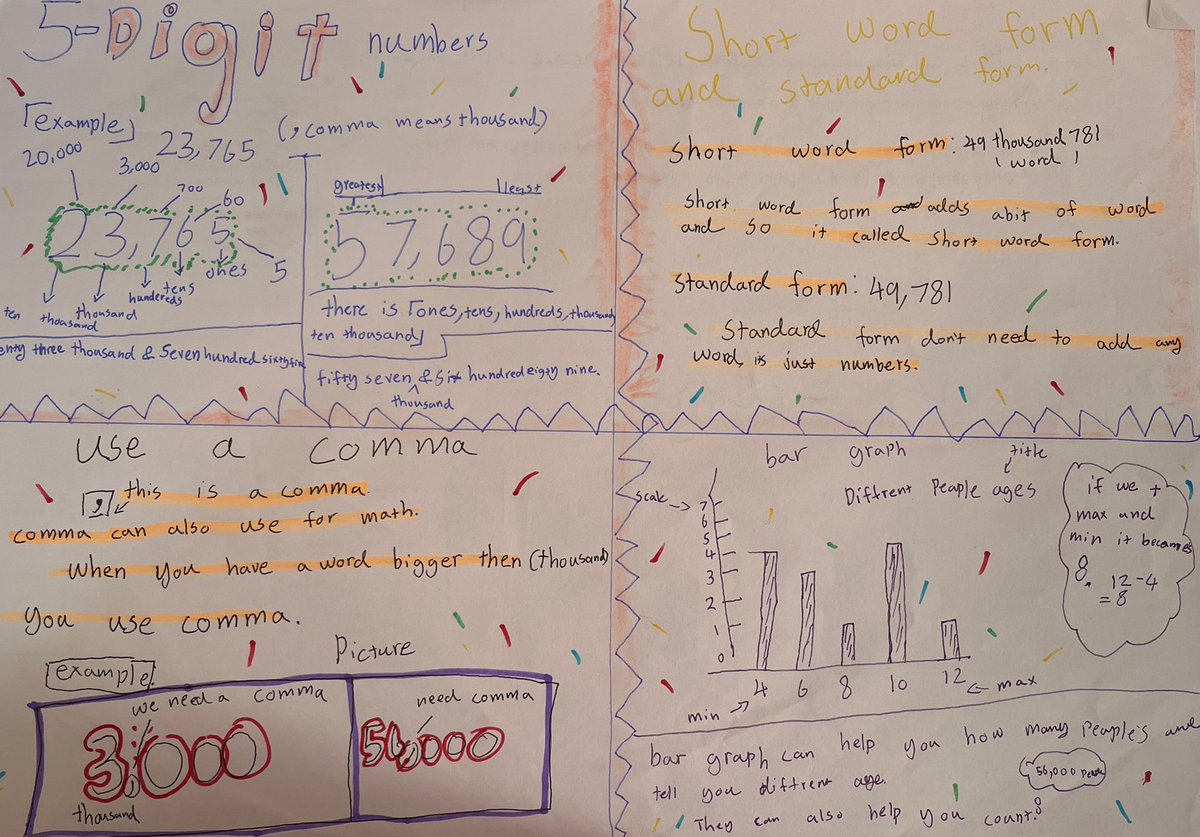 5-Digit numbers
[example]
(, comma means thousand)
20,000
3,000
23,765
700
60
23,765
5
ten thousand
thousand
hundereds
tens
ones
enty three thousand & Seven hundred sixty five
greatest
least
57,689
there is [ones, tens, hundreds, thousand
ten thousand]
fifty seven & six hundred eigty nine.
thousand
Short word form
and standard form.
Short word form: 49 thousand 781
( word )
Short word form adds abit of word
and so it called short word form.
Standard form: 49,781
Standard form don't need to add any
word, is just numbers.
use a comma
, this is a comma.
comma can also use for math.
When you have a word bigger then (thousand)
you use comma.
Picture
example
we need a comma
3,000
thousand
need comma
56,000
bar graph
title
Diffrent Peaple ages
scale
7
6
5
4
3
2
1
0
4 6 8 10 12
min
max
if we +
max and
min it becomes
8. 12-4
=8
bar graph can help you how many Peaple's and
tell you diffrent age.
56,000 Peaple
They can also help you count.